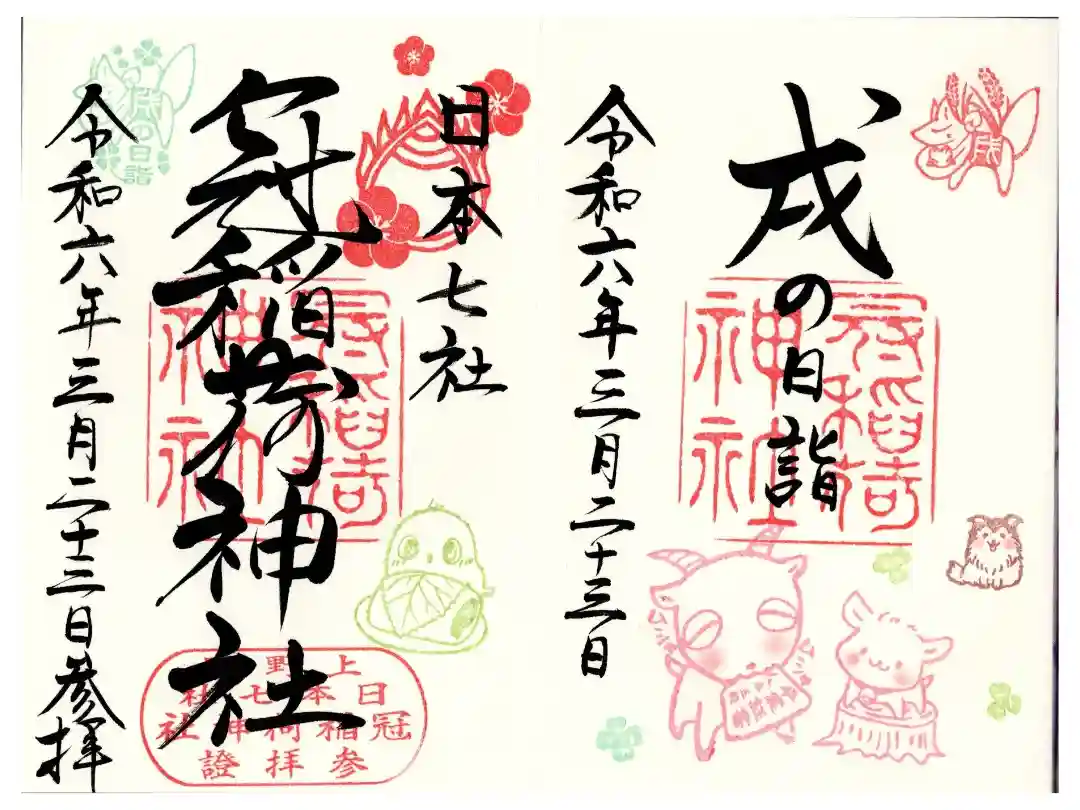 戌の日詣
冠稲荷
神社
令和六年三月二十三日
日本七社
冠稲荷神社
冠稲荷
神社
上野
日本七社
冠稲荷神社
参拝證
令和六年三月二十三日参拝
戌の日詣